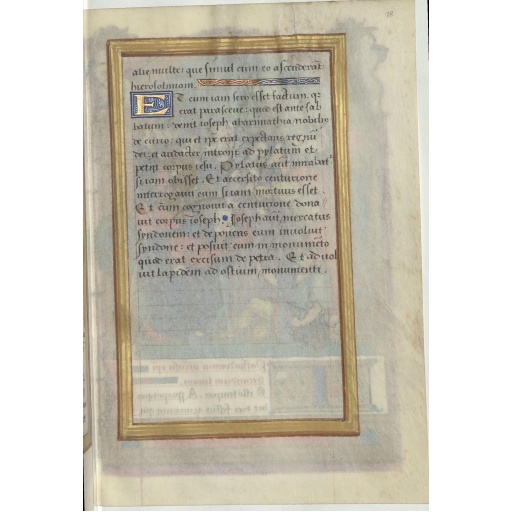 alie multe: que simul cum eo ascenderāt
hierosolimam.
ET cum iam sero esset factum. qr
erat parasceue: quod est ante sab
batum: venit ioseph abarimathia nobilis
decurio: qui et ipe erat expectans regnū
dei: et audacter introiit ad pylatum et
petiit corpus iesu. Pylatus autē mirabat
si iam obiisset. Et accersito centurione
interrogauit eum si iam mortuus esset.
Et cum cognouit a centurione dona
uit corpus ioseph. Ioseph autē mercatus
syndonem: et deponens eum inuoluit
syndone: et posuit eum in monumēto
quod erat excisum de petra. Et aduol
uit lapidem ad ostium monumenti.